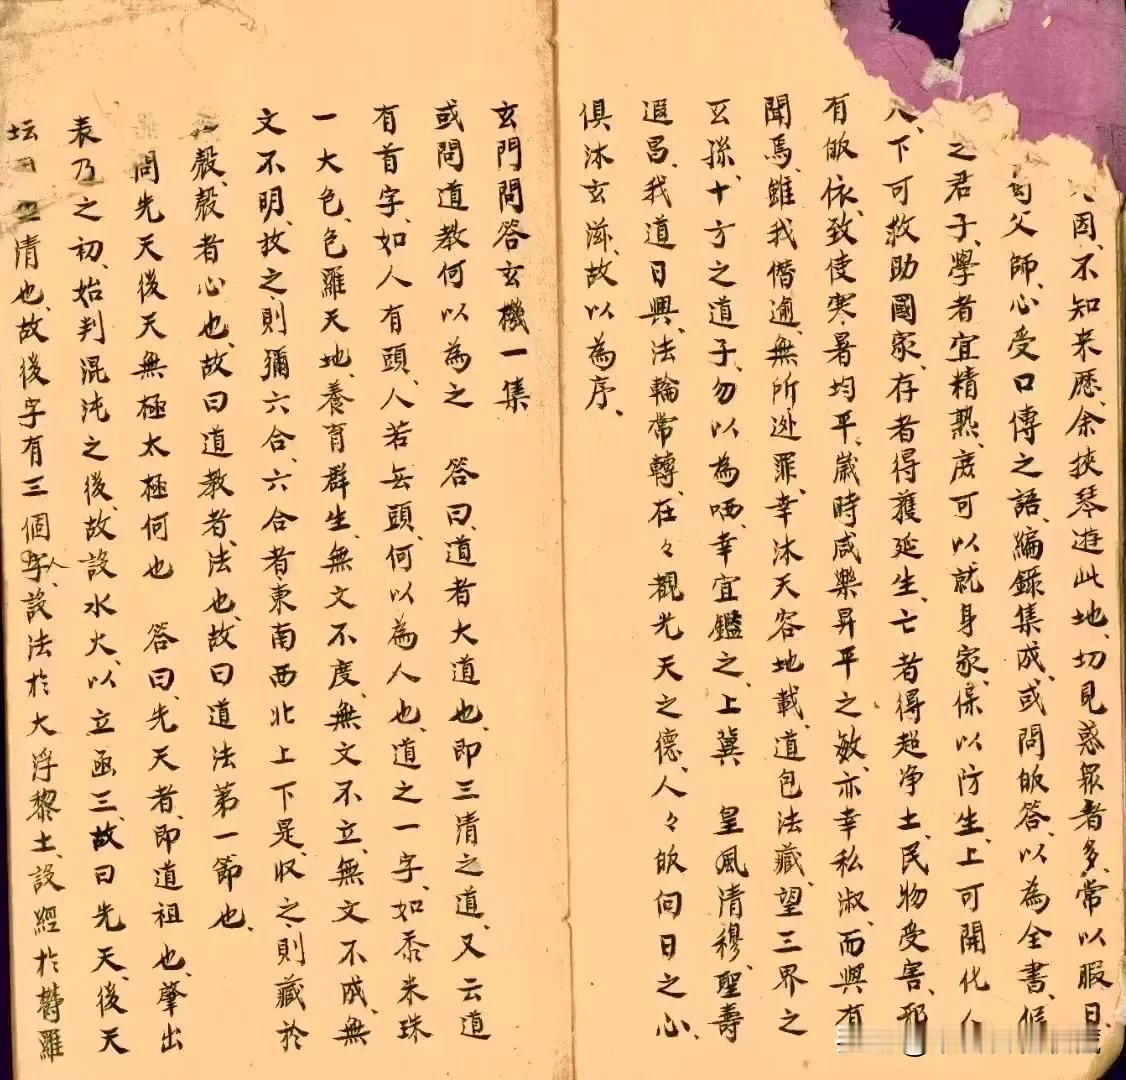 因、不知来歷、余挾琴遊此地、切見惑眾者多、常以暇日、
父師、心受口傳之語、編錄集成、或問皈答、以為全書、倘
之君子、學者宜精熟、庶可以就身家、保以防生、上可開化人
下可救助國家、存者得獲延生、亡者得超净土、民物受害、邪
有皈依、致使寒暑均平、歲時咸樂昇平之敏、亦幸私淑、而興有
聞焉、雖我僭逾、無所逃罪、幸沐天容地載、道包法藏、望三界之
玄孫、十方之道子、勿以為哂、幸宜鑑之、上冀 皇風清穆、聖壽
遐昌、我道日興、法輪常轉、在々觀光天之德、人々皈向日之心、
俱沐玄滋、故以為序、
玄門問答玄機一集
或問道教何以為之 答曰、道者大道也、即三清之道、又云道
有首字、如人有頭、人若無頭、何以為人也、道之一字、如黍米珠
一大色、色羅天地、養育群生、無文不度、無文不立、無文不成、無
文不明、放之、則彌六合、六合者東南西北上下是、收之、則藏於
殼、殼者心也、故曰道教者、法也、故曰道法第一節也、
問先天後天無極太極何也 答曰、先天者、即道祖也、肇出
表乃之初、始判混沌之後、故設水火、以立函三、故曰先天、後天
坛清也、故後字有三個人字、設法於大浮黎土、設經於欝羅